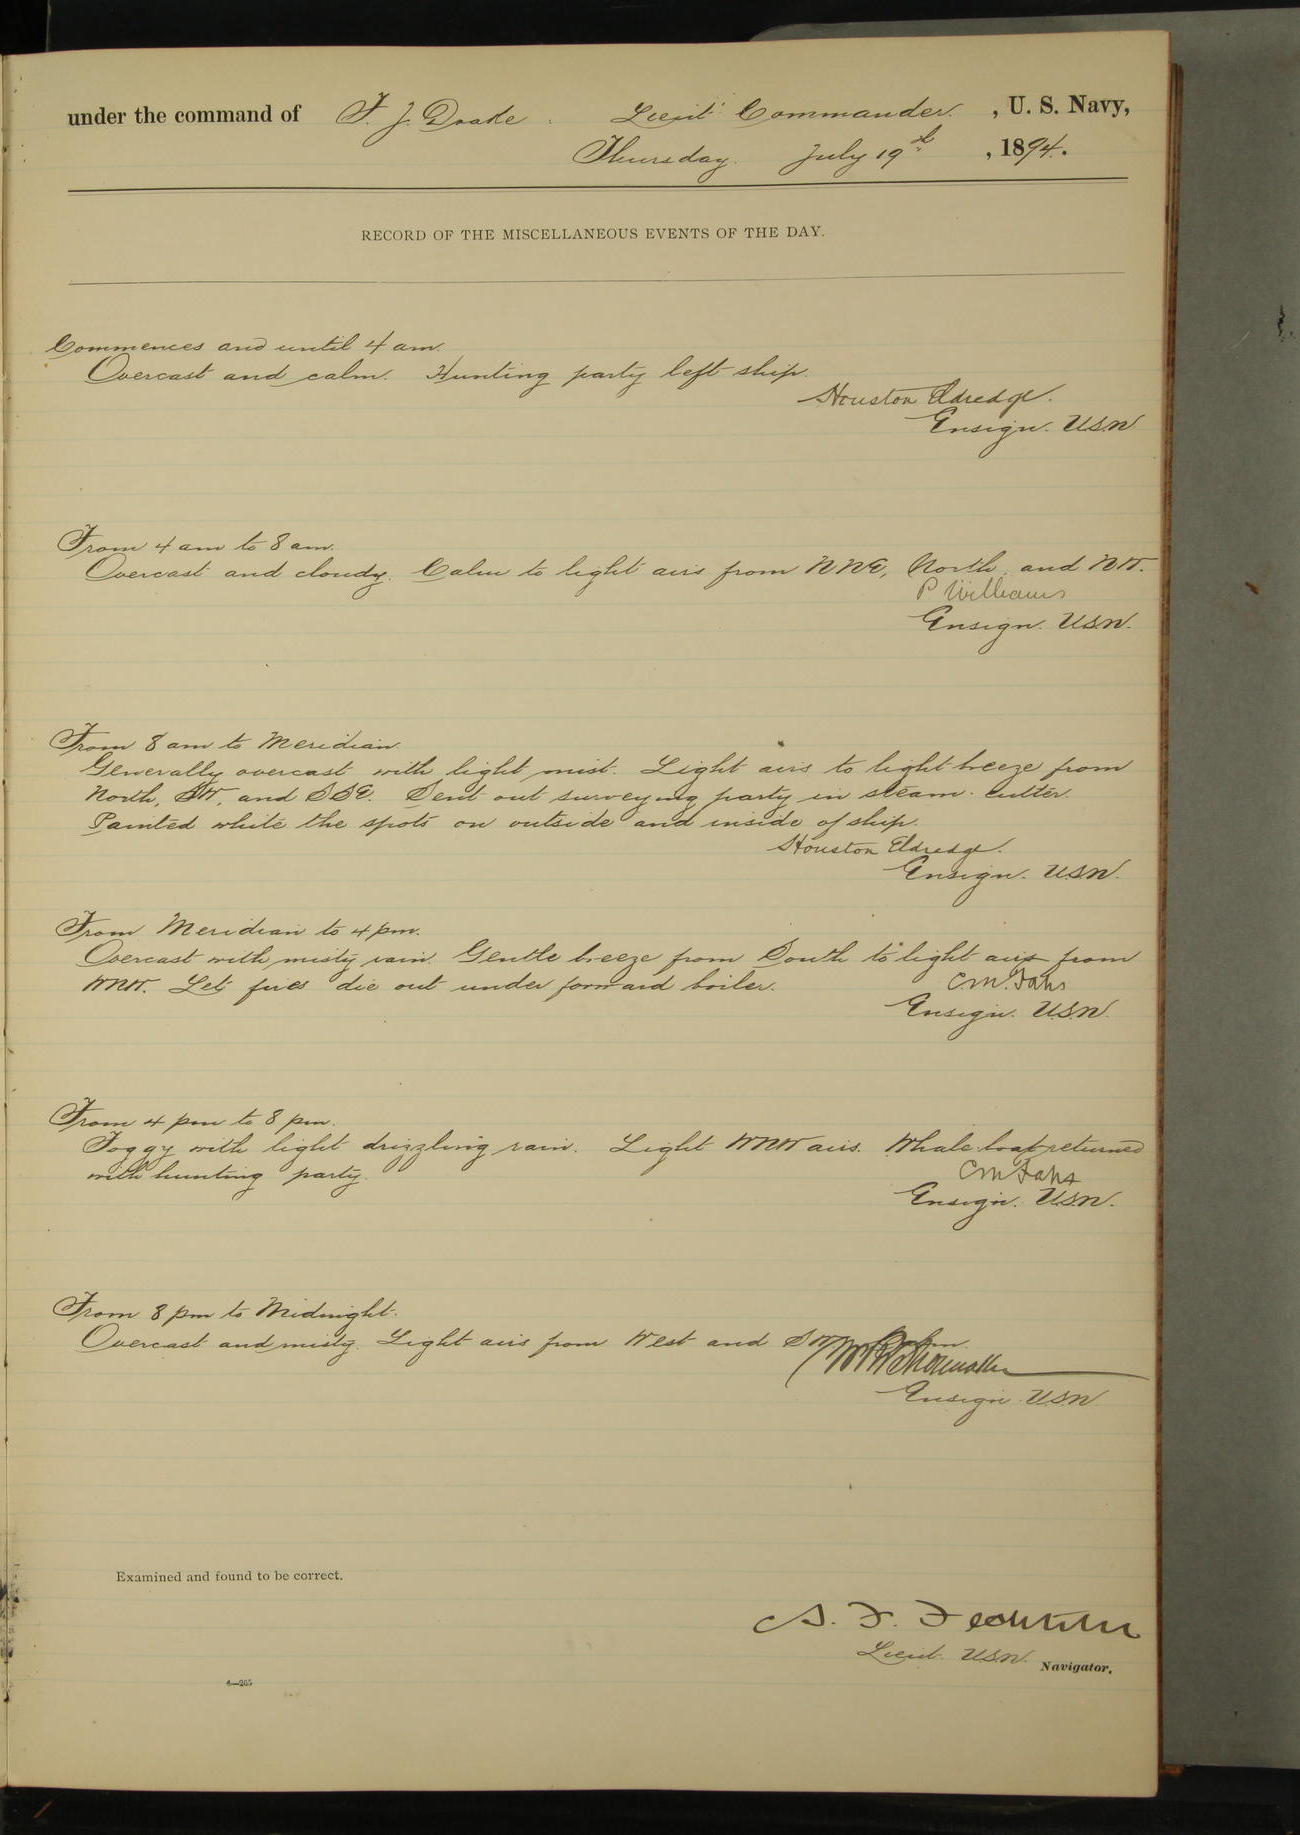 under the command of F. J. Drake. Lieut. Commander. , U. S. Navy,
Thursday. July 19th , 1894.
RECORD OF THE MISCELLANEOUS EVENTS OF THE DAY.
Commences and until 4 am.
Overcast and calm. Hunting party left ship.
Houston Eldredge.
Ensign. U.S.N
From 4 am to 8 am.
Overcast and cloudy. Calm to light airs from NNE, North, and NW.
P Williams
Ensign. U.S.N.
From 8 am to Meridian.
Generally overcast with light mist. Light airs to light breeze from
North, SW, and SSE. Sent out surveying party in steam-cutter.
Painted white the spots on outside and inside of ship.
Houston Eldredge.
Ensign. U.S.N.
From Meridian to 4 pm.
Overcast with misty rain. Gentle breeze from South to light airs from
WNW. Let fires die out under forward boiler.
C M. Fahs
Ensign. U.S.N.
From 4 pm to 8 pm.
Foggy with light drizzling rain. Light WNW airs. Whale-boat returned
with hunting party.
C M Fahs
Ensign. U.S.N.
From 8 pm to Midnight.
Overcast and misty. Light airs from West and SW
Ensign U.S.N.
Examined and found to be correct.
A. F. Fechteler
Lieut. U.S.N. Navigator.
4—205